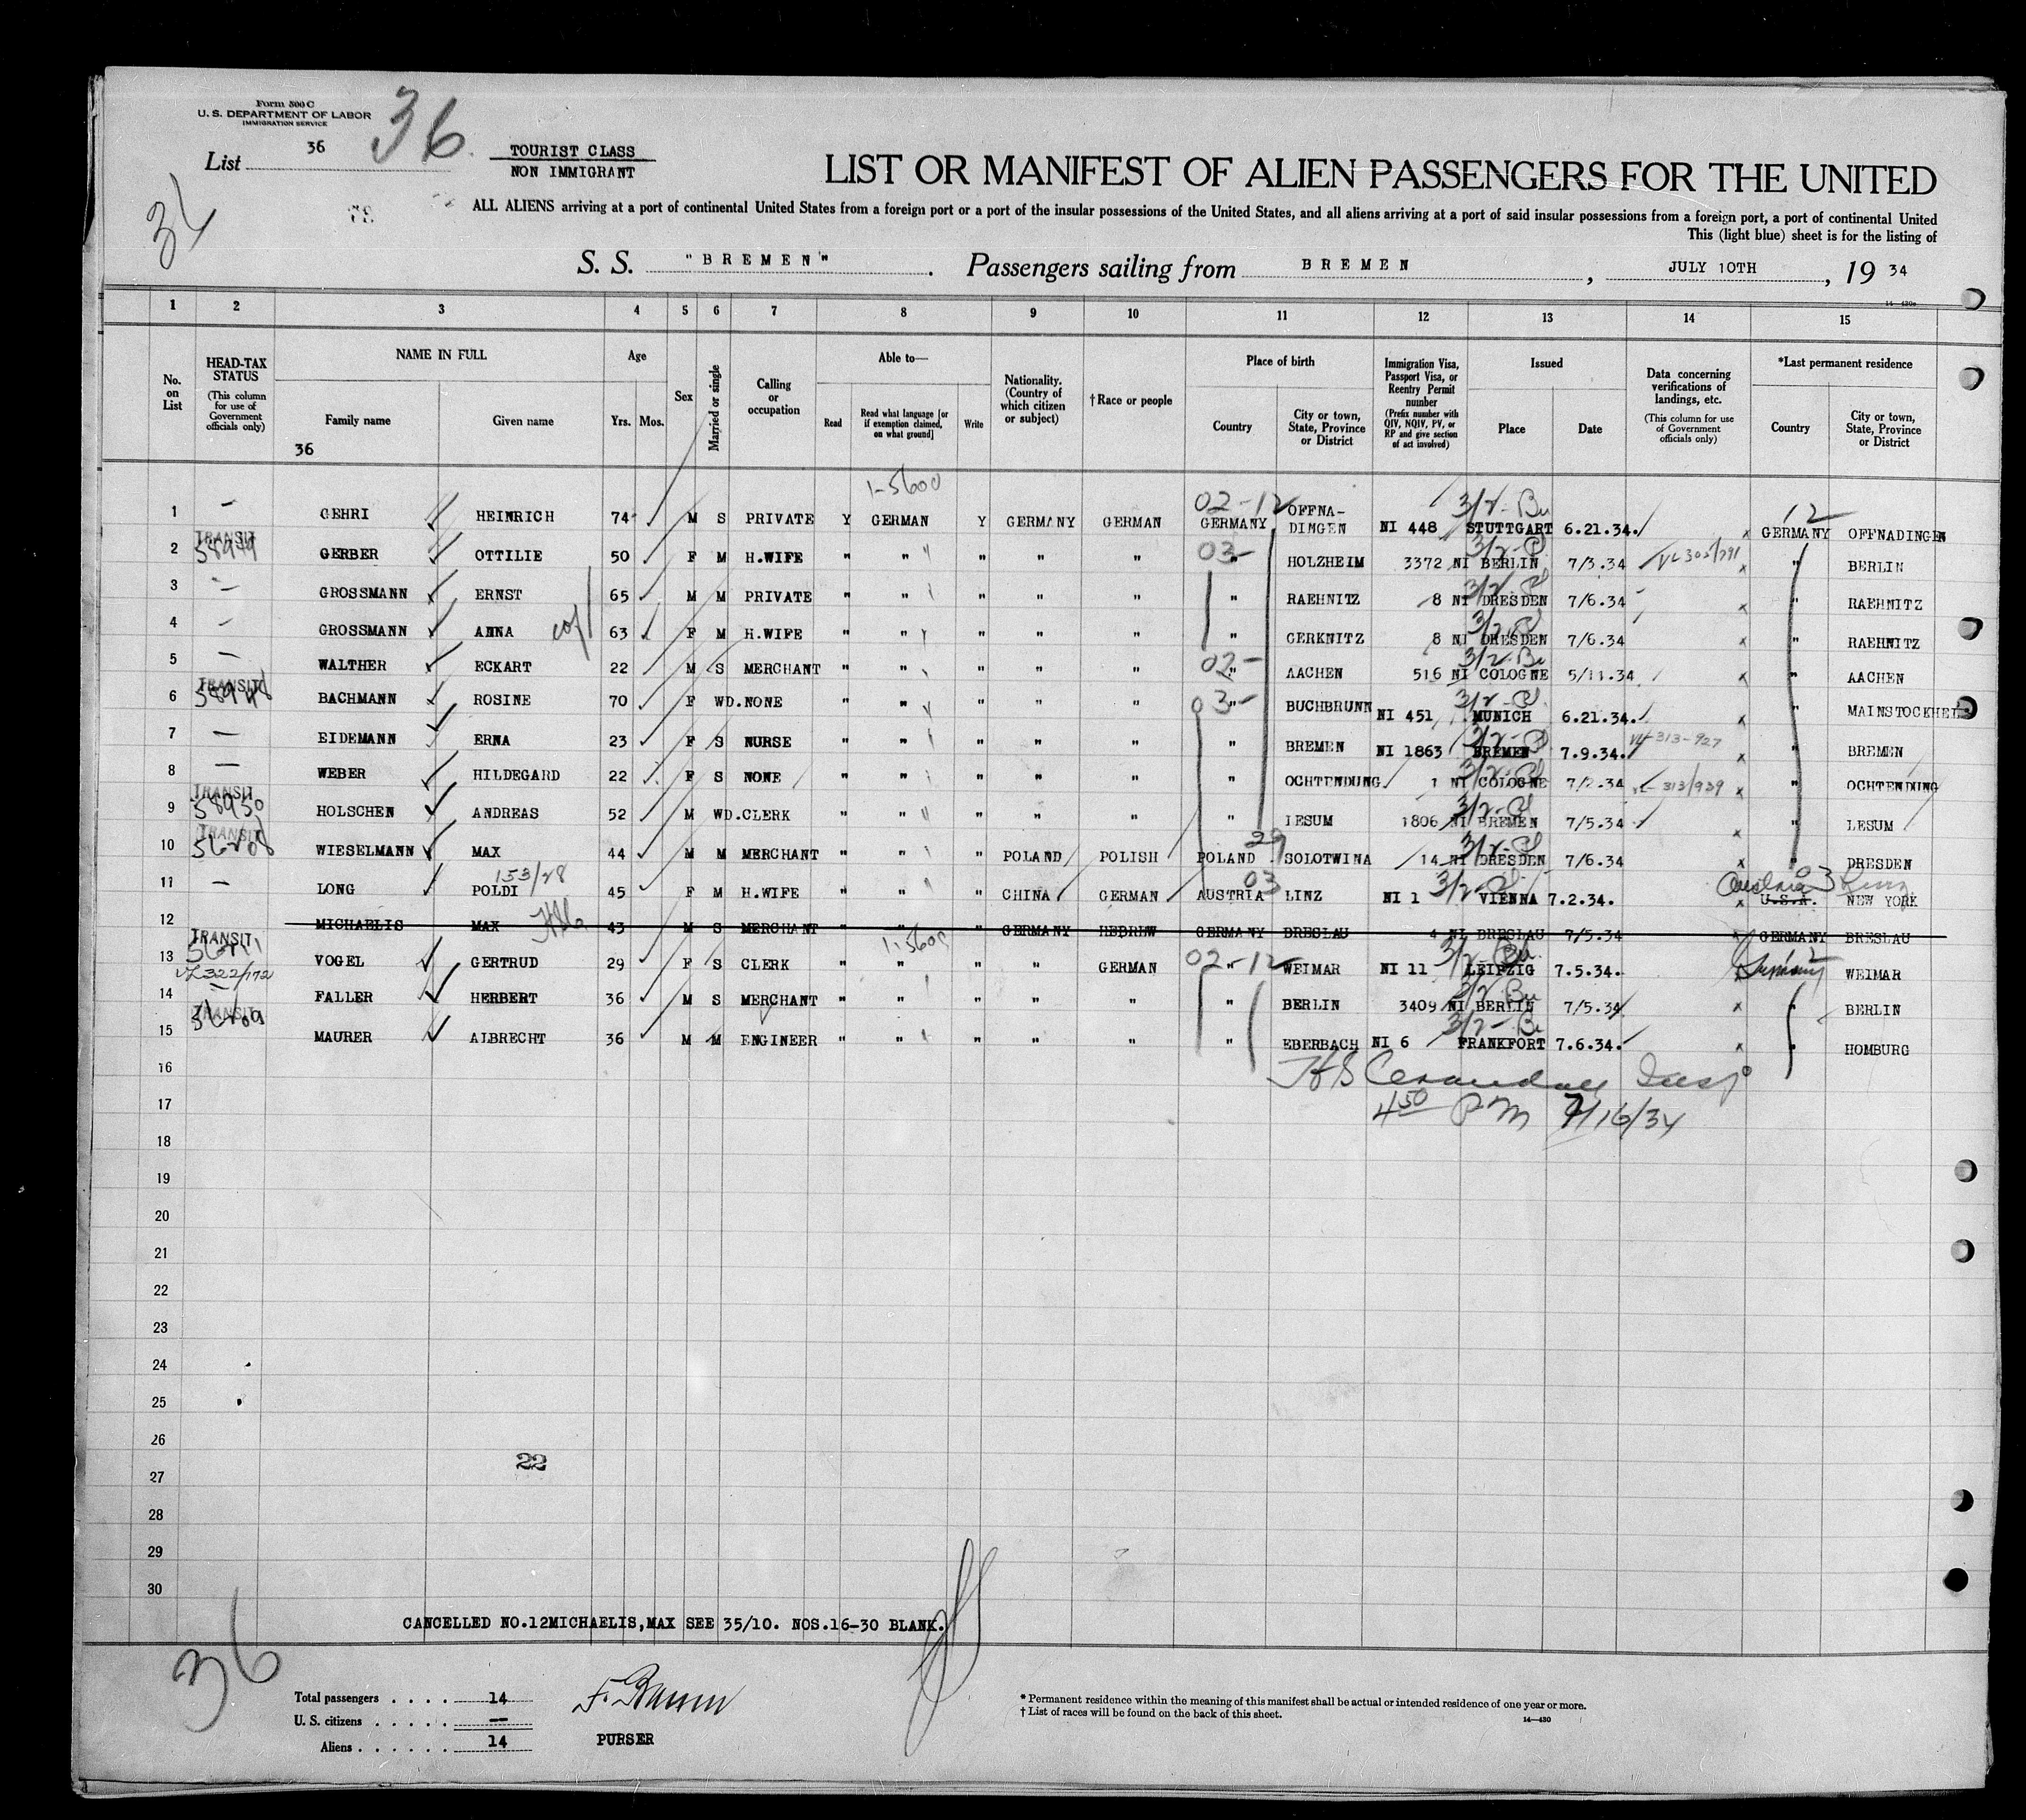 Form 500 C
U. S. DEPARTMENT OF LABOR
IMMIGRATION SERVICE
List 36
36
TOURIST CLASS
NON IMMIGRANT
LIST OR MANIFEST OF ALIEN PASSENGERS FOR THE UNITED
ALL ALIENS arriving at a port of continental United States from a foreign port or a port of the insular possessions of the United States, and all aliens arriving at a port of said insular possessions from a foreign port, a port of continental United
This (light blue) sheet is for the listing of
S. S. "BREMEN". Passengers sailing from BREMEN, JULY 10TH, 19 34
1 2 3 4 5 6 7 8 9 10 11 12 13 14 15
No. on List
HEAD-TAX STATUS
(This column for use of Government officials only)
NAME IN FULL
Family name
Given name
36
Age
Yrs. Mos.
Sex
Married or single
Calling or occupation
Able to—
Read
Read what language [or if exemption claimed, on what ground]
Write
Nationality. (Country of which citizen or subject)
† Race or people
Place of birth
Country
City or town, State, Province or District
Immigration Visa, Passport Visa, or Reentry Permit number
(Prefix number with QIV, NQIV, PV, or RP and give section of act involved)
Issued
Place
Date
Data concerning verifications of landings, etc.
(This column for use of Government officials only)
*Last permanent residence
Country
City or town, State, Province or District
1-5600
02-12
12
1 — GEHRI HEINRICH 74 M S PRIVATE Y GERMAN Y GERMANY GERMAN GERMANY OFFNA-DINGEN NI 448 STUTTGART 6.21.34. x GERMANY OFFNADINGEN
2 TRANSIT 58949 GERBER OTTILIE 50 F M H.WIFE " " " " " " HOLZHEIM 3372 NI BERLIN 7/3.34 x " BERLIN
3 — GROSSMANN ERNST 65 M M PRIVATE " " " " " " RAEHNITZ 8 NI DRESDEN 7/6.34 x " RAEHNITZ
4 — GROSSMANN ANNA 63 F M H.WIFE " " " " " " GERKNITZ 8 NI DRESDEN 7/6.34 x " RAEHNITZ
5 — WALTHER ECKART 22 M S MERCHANT " " " " " " AACHEN 516 NI COLOGNE 5/11.34 x " AACHEN
6 TRANSIT 58948 BACHMANN ROSINE 70 F WD. NONE " " " " " " BUCHBRUNN NI 451 MUNICH 6.21.34. x " MAINSTOCKHEI
7 — EIDEMANN ERNA 23 F S NURSE " " " " " " BREMEN NI 1863 BREMEN 7.9.34. 313-927 x " BREMEN
8 — WEBER HILDEGARD 22 F S NONE " " " " " " OCHTENDUNG 1 NI COLOGNE 7/2.34 313/939 x " OCHTENDUNG
9 TRANSIT 58950 HOLSCHEN ANDREAS 52 M WD. CLERK " " " " " " LESUM 1806 NI BREMEN 7/5.34 x " LESUM
10 TRANSIT 56208 WIESELMANN MAX 44 M M MERCHANT " " " POLAND POLISH POLAND SOLOTWINA 14 NI DRESDEN 7/6.34 x " DRESDEN
11 — LONG POLDI 153/28 45 F M H.WIFE " " " CHINA GERMAN AUSTRIA LINZ NI 1 VIENNA 7.2.34. x U.S.A. Austria NEW YORK
12 MICHAELIS MAX 43 M S MERCHANT " " " GERMANY HEBREW GERMANY BRESLAU 4 NI BRESLAU 7/5.34 GERMANY BRESLAU
13 TRANSIT VOGEL GERTRUD 29 F S CLERK " " " " GERMAN " WEIMAR NI 11 LEIPZIG 7.5.34. Germany WEIMAR
14 322/172 FALLER HERBERT 36 M S MERCHANT " " " " " " BERLIN 3409 NI BERLIN 7/5.34 x " BERLIN
15 TRANSIT 56209 MAURER ALBRECHT 36 M M ENGINEER " " " " " " EBERBACH NI 6 FRANKFORT 7.6.34. x " HOMBURG
16
17 4 50 PM 7/16/34
18
19
20
21
22
23
24
25
26
27 22
28
29
30
CANCELLED NO.12MICHAELIS,MAX SEE 35/10. NOS.16-30 BLANK.
36
Total passengers . . . . 14
U. S. citizens . . . . . —
Aliens . . . . . . 14
PURSER
* Permanent residence within the meaning of this manifest shall be actual or intended residence of one year or more.
† List of races will be found on the back of this sheet.
14—430